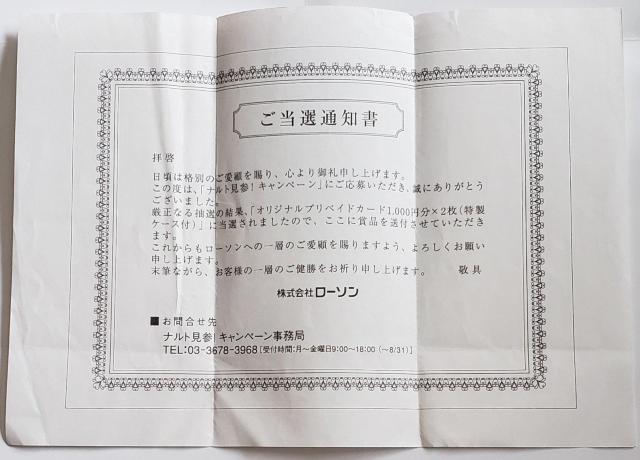 ご当選通知書
拝啓
日頃は格別のご愛顧を賜り、心より御礼申し上げます。
この度は、「ナルト見参！キャンペーン」にご応募いただき、誠にありがとう
ございました。
厳正なる抽選の結果、「オリジナルプリペイドカード1,000円分×2枚（特製
ケース付）」に当選されましたので、ここに賞品を送付させていただき
ます。
これからもローソンへの一層のご愛顧を賜りますよう、よろしくお願い
申し上げます。
末筆ながら、お客様の一層のご健勝をお祈り申し上げます。 敬具
株式会社ローソン
■お問合せ先
ナルト見参！キャンペーン事務局
TEL:03-3678-3968［受付時間:月～金曜日9:00～18:00（～8/31）］